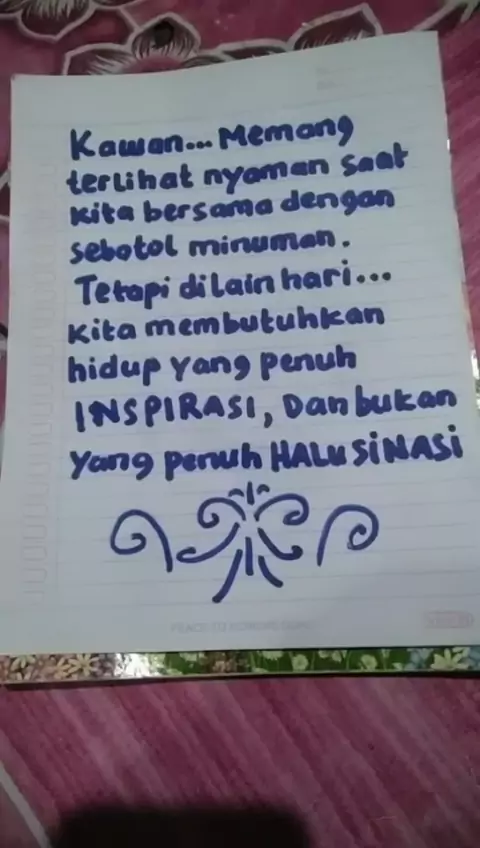 Kawan... Memang
terlihat nyaman saat
kita bersama dengan
sebotol minuman.
Tetapi dilain hari...
kita membutuhkan
hidup yang penuh
INSPIRASI, Dan bukan
yang penuh HALUSiNASi